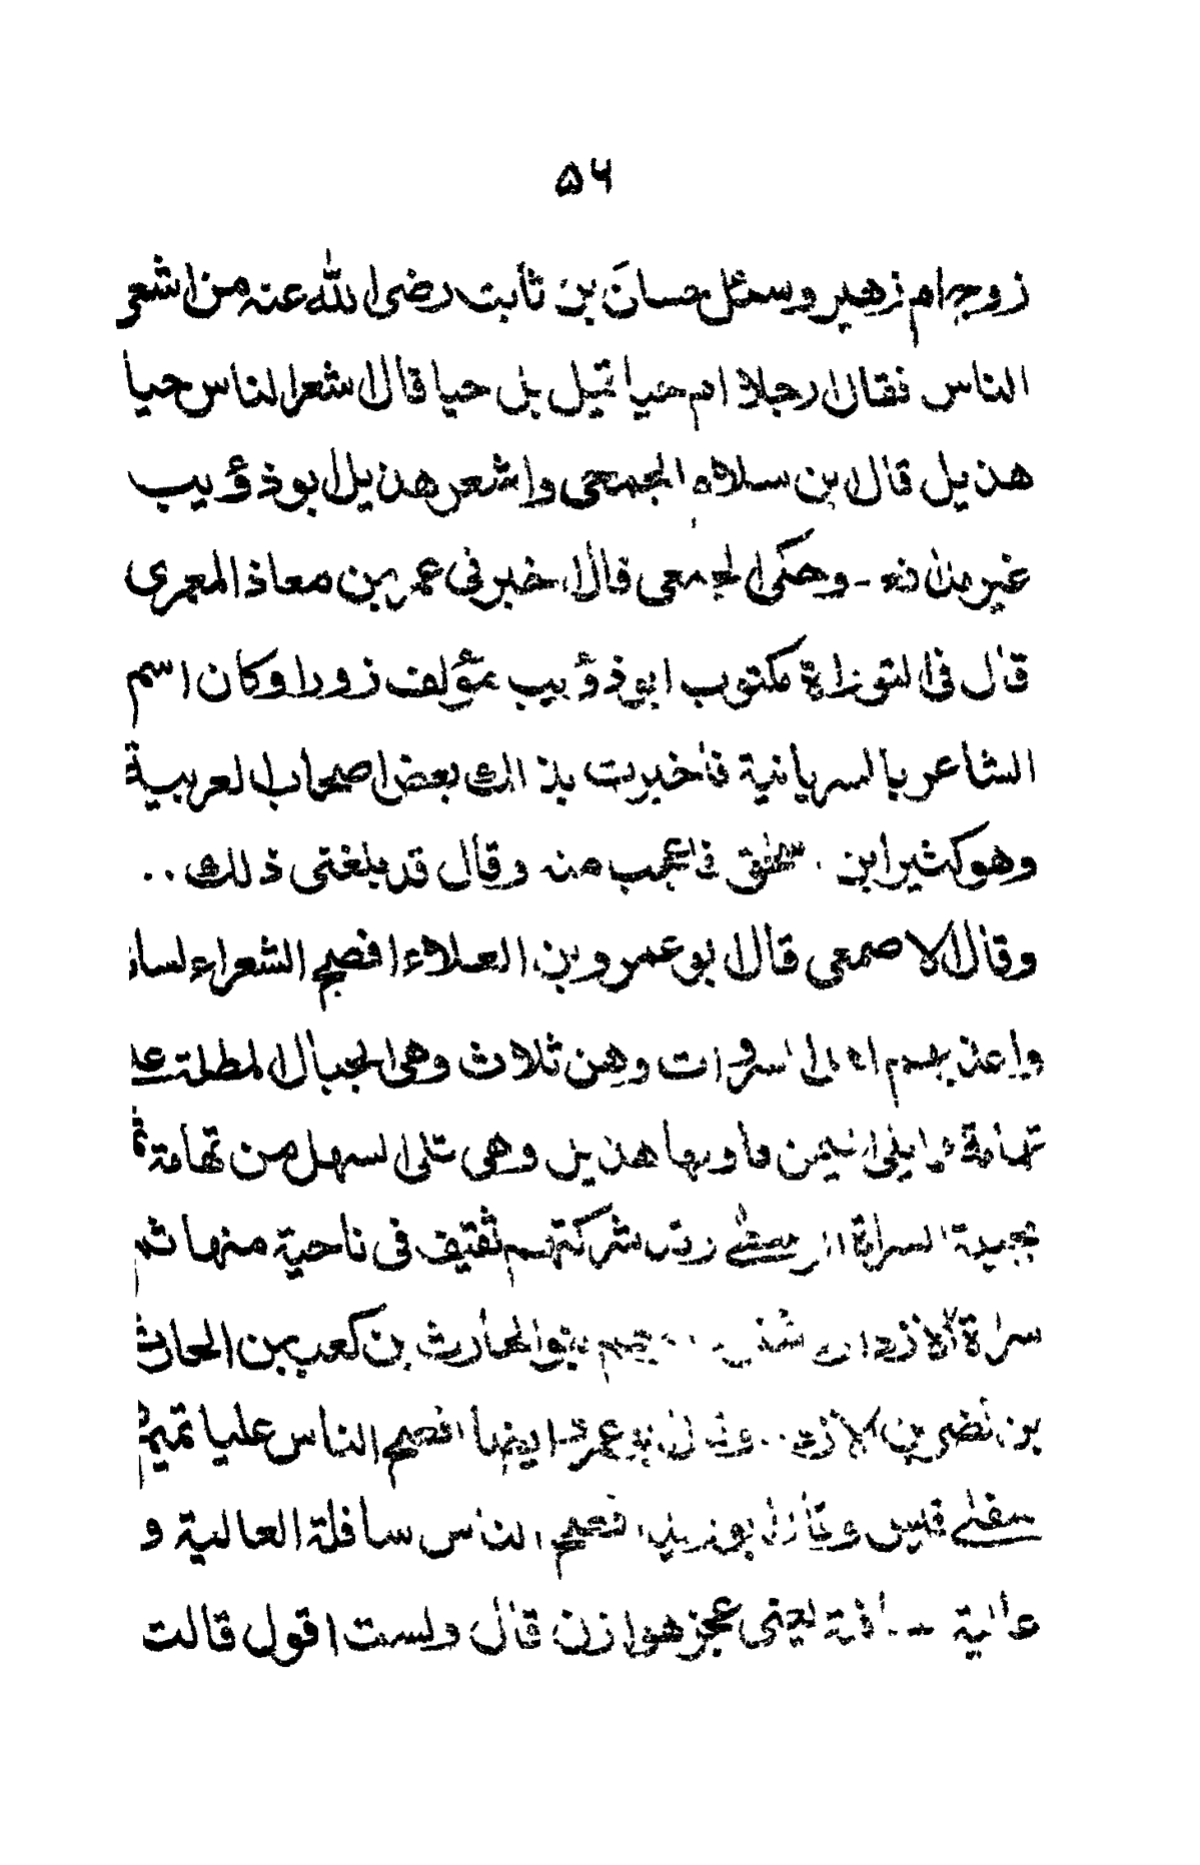 ۵۶
زوجہ ام زهير وسئل حسانَ بن ثابت رضى الله عنہ من اشعر
الناس فقال ارجلا ام حيا قيل بل حيا قال اشعر الناس حيا
هذيل قال ابن سلام الجمحى واشعر هذيل ابو ذؤيب
غير مدافع - وحكى الجمعى قال اخبرنى عمر بن معاذ المعمرى
قال فى التوراة مكتوب ابو ذؤيب مؤلف زورا وكان اسم
الشاعر بالسريانية فاخبرت بذالك بعض اصحاب العربية
وهو كثير ابن فاعجب منہ وقال قد بلغنى ذلك ..
وقال الاصمعى قال ابو عمرو بن العلاء افصح الشعراء لسانا
واعذبهم اهل السروات وهن ثلاث وهى الجبال المطلة على
تهامة مما يلى اليمن فاولها هذيل وهى تلى السهل من تهامة ثم
بجيلة السراة الوسطى وقد شركتهم ثقيف فى ناحية منها ثم
سراة الازد بنو الحارث بن كعب بن الحارث
بن نضر بن الازد .. وقال ابو عمرو ايضا افصح الناس عليا تميم و
سفلى قيس وقال ابو زيد افصح الناس سافلة العالية و
عالية السافلة يعنى عجز هوازن قال ولست اقول قالت